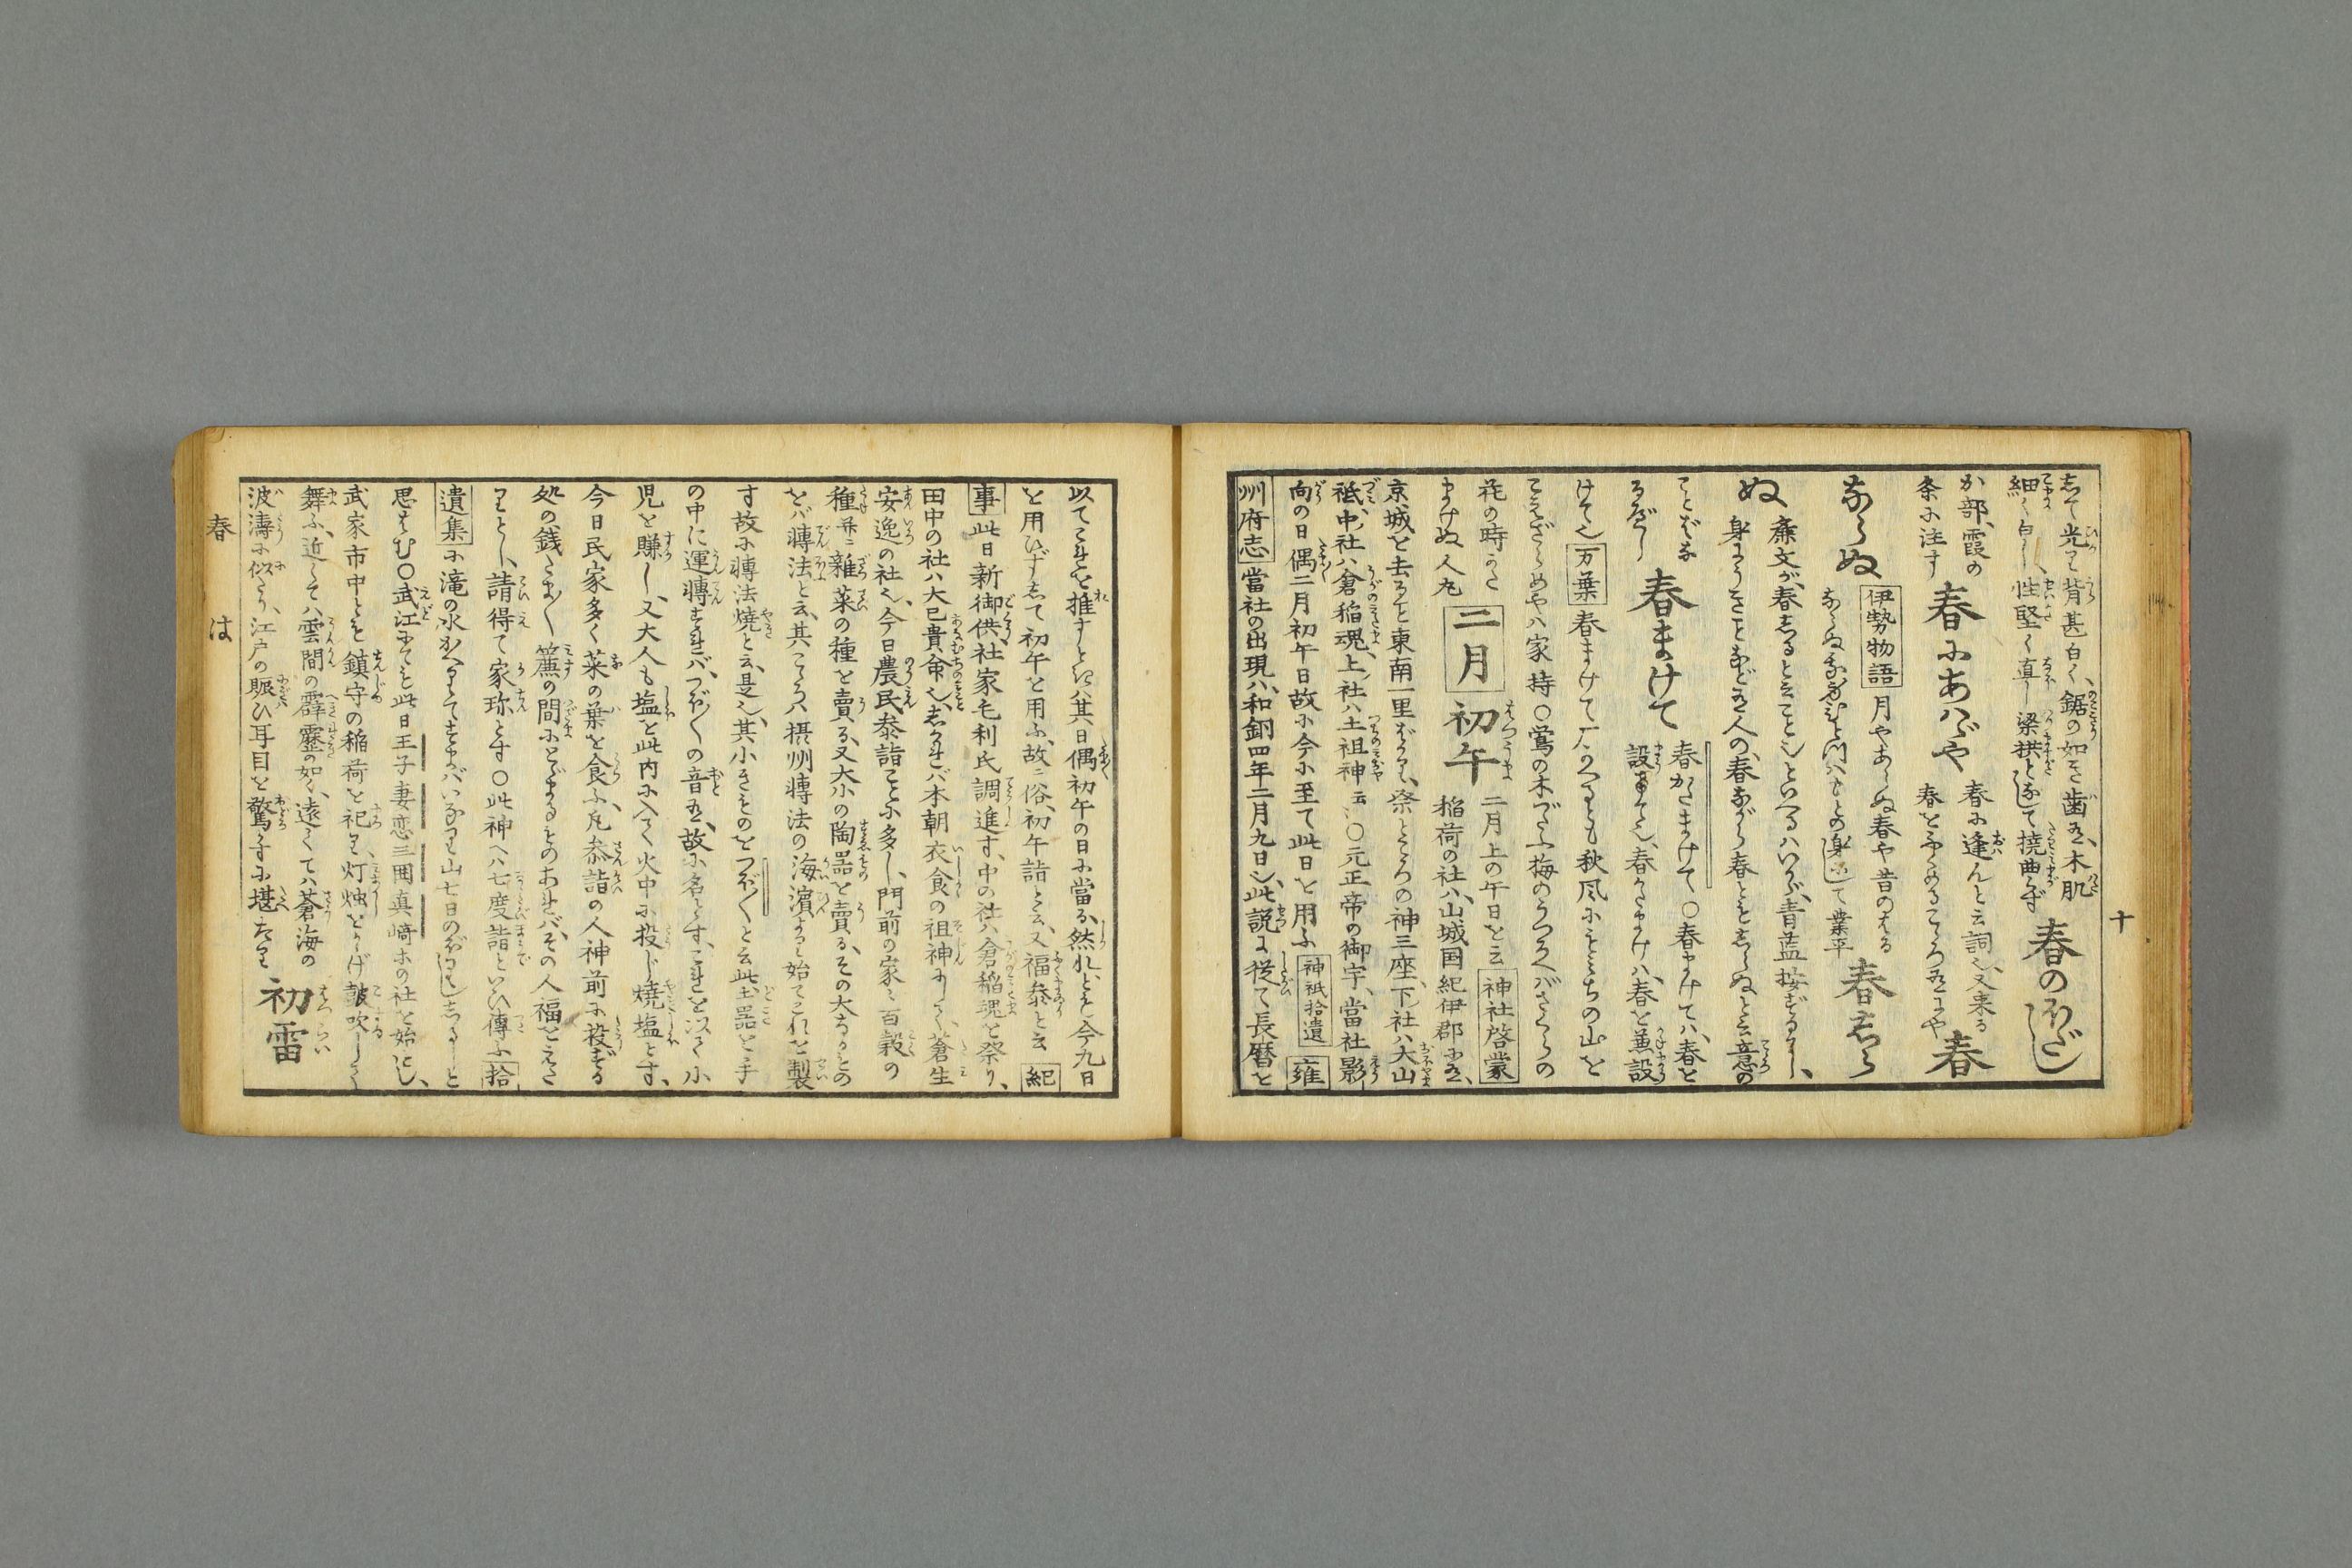 十
して光り背甚白く、鋸の如き歯有、木肌
細く白し、性堅く直し梁拱として撓曲らず
春のほだし
か部、霞の
条に注す
春にあはゞや
春に逢んと云詞也、又来る
春とふくめるこゝろ有にや
春
ならぬ
伊勢物語
月やあらぬ春や昔のはる
ならぬ我身ひとつはもとの身にして 業平
春しら
ぬ
廉文が、春しるといふことしといへるはいかが、青藍按ずるに、
身にうきことなど有人の、春ながら春ともしらぬと云意の
ことばな
るべし
春まけて
春かたまけて○春まけては、春を
設まて也、春かたまけは、春を兼設
けて也
万葉
春まけてかくかへるとも秋風にもみちの山を
こえざらめやは 家持○鶯の木づたふ梅のうつろへばさくらの
花の時かた
まけぬ 人丸
二月
初午
二月上の午日を云
神社啓蒙
稲荷の社は、山城国紀伊郡に有、
京城を去ること東南一里ばかり、祭ところの神三座、下社は大山
祇、中社は倉稲魂、上社は土祖神云云○元正帝の御宇、當社影
向の日偶二月初午日故に今に至て此日を用ふ
神祇拾遺
雍
州府志
當社の出現は、和銅四年二月九日也、此説に従て長暦を
以てこれを推すときは其日偶初午の日に當る、然れども今九日
を用ひずして初午を用ふ、故ニ俗、初午詣と云、又福参と云
紀
事
此日新御供、社家毛利氏調進す、中の社は倉稲魂を祭り、
田中の社は大己貴命也、しかれば本朝衣食の祖神にして、蒼生
安逸の社也、今日農民参詣ことに多し、門前の家に百穀の
種并ニ雑菜の種を賣る、又大小の陶器を賣る、その大なるもの
をバ轉法と云、其こゝろハ摂州轉法の海濱より始てこれを製
す故に轉法焼と云、是也、其小きものをつぼ〳〵と云此土器を手
の中に運轉すれバ、つぼ〳〵の音有、故に名とす、これを以て小
児を賺し、又大人も塩を此内に入て火中に投じ焼塩とす、
今日民家多く菜の葉を食ふ、凡参詣の人神前に投ずる
処の銭たま〳〵簾の間にとゞまるものあれバ、その人福をえた
りとし、請得て家珎とす○此神へハ七度詣といひ傳ふ
拾
遺集
に滝の水かへりてすまバいなり山七日のぼりししるしと
思はむ○武江にても此日王子妻恋三囲真崎ホの社を始とし、
武家市中とも鎮守の稲荷を祀り、灯燭をかゝげ皷吹しして
舞ふ、近くしてハ雲間の霹靂の如く、遠くてハ蒼海の
波濤に似たり、江戸の賑ひ耳目を驚すに堪たり
初雷
春
は